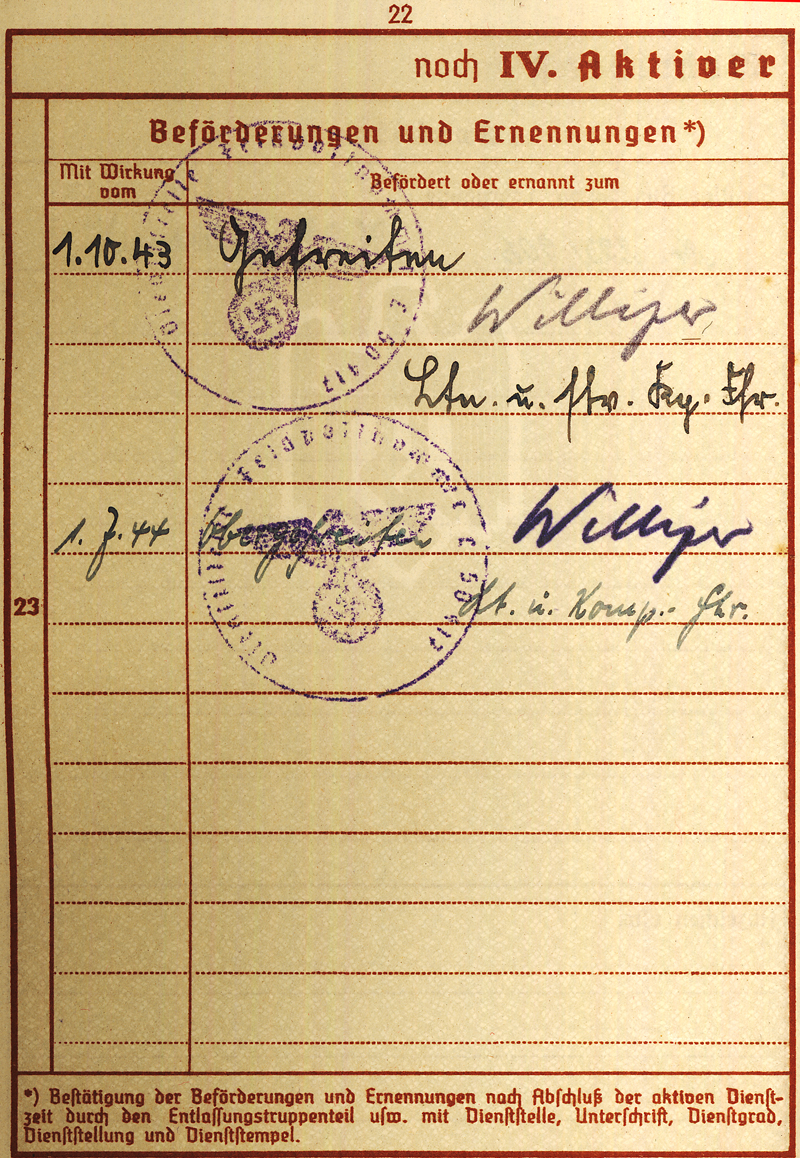 22
noch IV. Aktiver
Beförderungen und Ernennungen*)
Mit Wirkung
vom
Befördert oder ernannt zum
Dienststelle Feldpostnummer L 50 417
1.10.43 Gefreiten
Williger
Ltn. u. stv. Kp. Fhr.
Dienststelle Feldpostnummer L 50 417
1. 7. 44 Obergefreiten Williger
23
Lt. u. Komp.- Fhr.
*) Bestätigung der Beförderungen und Ernennungen nach Abschluß der aktiven Dienst-
zeit durch den Entlassungstruppenteil usw. mit Dienststelle, Unterschrift, Dienstgrad,
Dienststellung und Dienststempel.